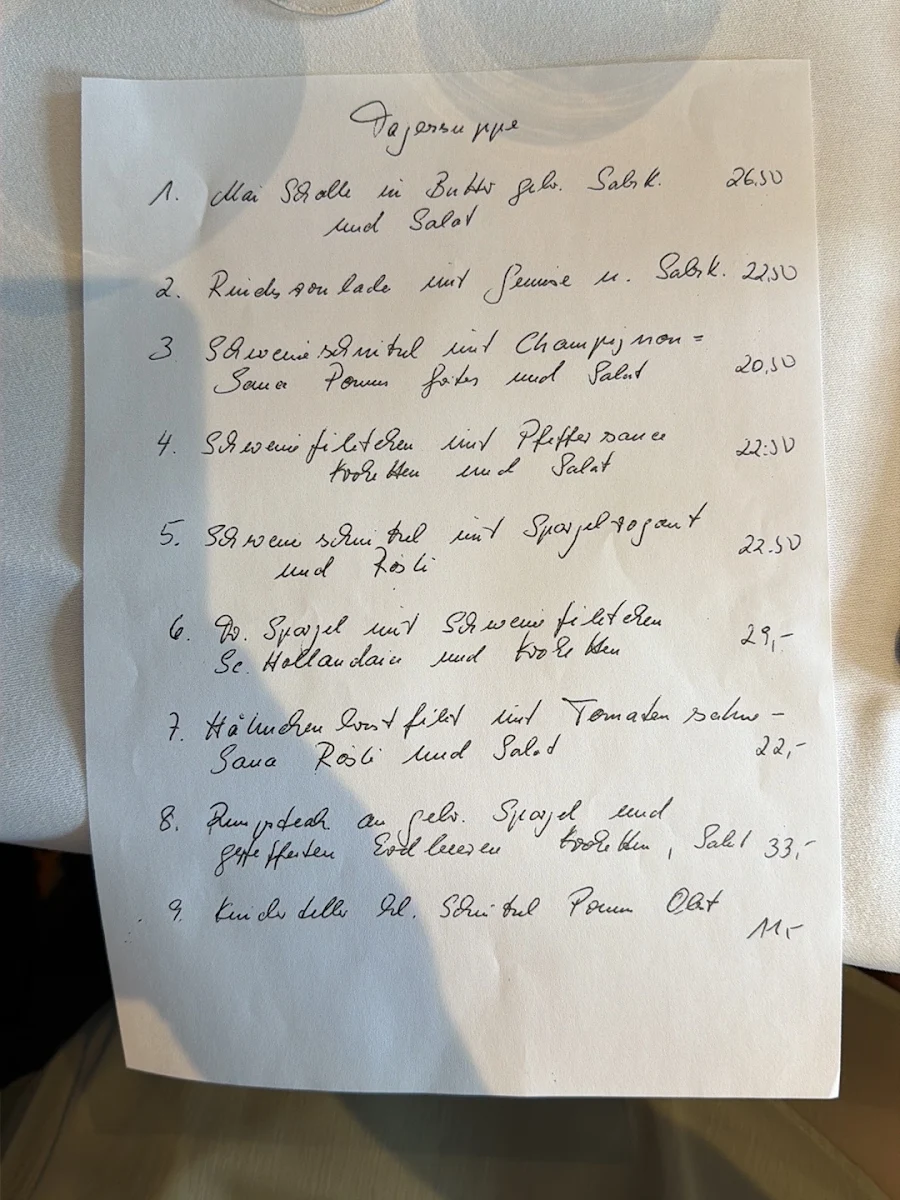 Tagessuppe
1. Mai Scholle in Butter gebr. Salzk. 26,50
und Salat
2. Rindsroulade mit Gemüse u. Salzk. 22,50
3 Schweineschnitzel mit Champignon=
Sauce Pommes frites und Salat 20,50
4. Schweinefiletchen mit Pfeffersauce 22.50
Kroketten und Salat
5. Schweineschnitzel mit Spargelragout 22.50
und Rösti
6. Spargel mit Schweinefiletchen 29,-
Sc. Hollandaise und Kroketten
7. Hähnchenbrustfilet mit Tomatensahne-
Sauce Rösti und Salat 22,-
8. Rumpsteak an gebr. Spargel und
gepfefferten Erdbeeren Kroketten, Salat 33,-
9. Kinderteller kl. Schnitzel Pommes Obst
11,-